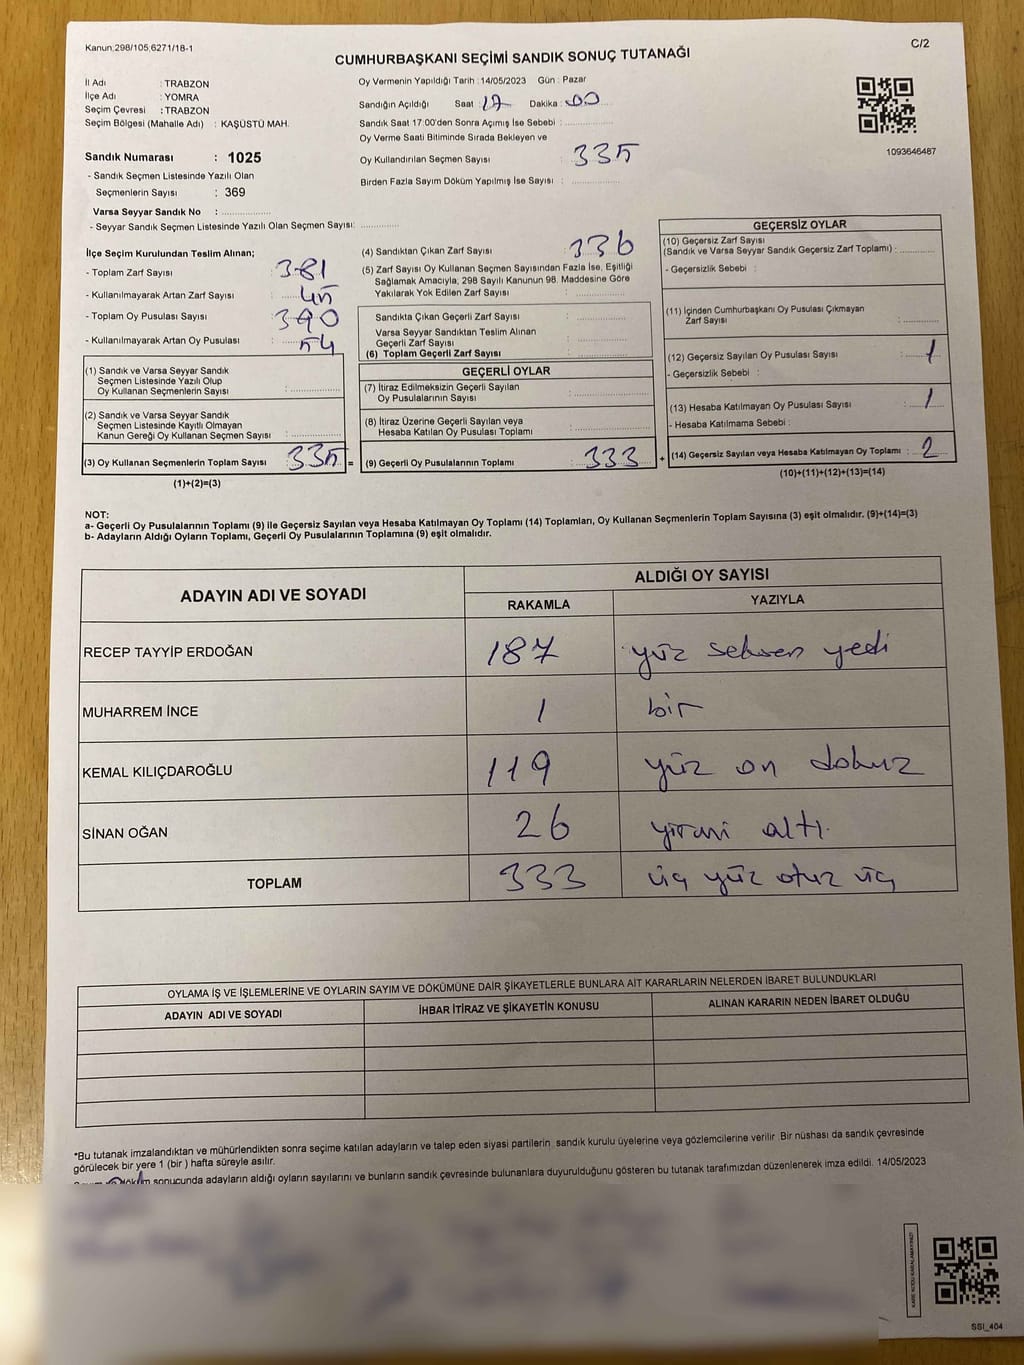 Kanun;298/105,6271/18-1
C/2
CUMHURBAŞKANI SEÇİMİ SANDIK SONUÇ TUTANAĞI
İl Adı : TRABZON
İlçe Adı : YOMRA
Seçim Çevresi : TRABZON
Seçim Bölgesi (Mahalle Adı) : KAŞÜSTÜ MAH.
Sandık Numarası : 1025
- Sandık Seçmen Listesinde Yazılı Olan
Seçmenlerin Sayısı : 369
Varsa Seyyar Sandık No :
- Seyyar Sandık Seçmen Listesinde Yazılı Olan Seçmen Sayısı:
Oy Vermenin Yapıldığı Tarih :14/05/2023 Gün : Pazar
Sandığın Açıldığı Saat : 17 Dakika : 00
Sandık Saat 17:00'den Sonra Açımış İse Sebebi :
Oy Verme Saati Bitiminde Sırada Bekleyen ve
Oy Kullandırılan Seçmen Sayısı : 335
Birden Fazla Sayım Döküm Yapılmış İse Sayısı :
1093646487
İlçe Seçim Kurulundan Teslim Alınan;
- Toplam Zarf Sayısı : 381
- Kullanılmayarak Artan Zarf Sayısı : 45
- Toplam Oy Pusulası Sayısı : 390
- Kullanılmayarak Artan Oy Pusulası : 54
(1) Sandık ve Varsa Seyyar Sandık
Seçmen Listesinde Yazılı Olup
Oy Kullanan Seçmenlerin Sayısı :
(2) Sandık ve Varsa Seyyar Sandık
Seçmen Listesinde Kayıtlı Olmayan
Kanun Gereği Oy Kullanan Seçmen Sayısı :
(3) Oy Kullanan Seçmenlerin Toplam Sayısı : 335 =
(1)+(2)=(3)
(4) Sandıktan Çıkan Zarf Sayısı : 336
(5) Zarf Sayısı Oy Kullanan Seçmen Sayısından Fazla İse, Eşitliği
Sağlamak Amacıyla; 298 Sayılı Kanunun 98. Maddesine Göre
Yakılarak Yok Edilen Zarf Sayısı :
Sandıkta Çıkan Geçerli Zarf Sayısı :
Varsa Seyyar Sandıktan Teslim Alınan
Geçerli Zarf Sayısı :
(6) Toplam Geçerli Zarf Sayısı :
GEÇERLİ OYLAR
(7) İtiraz Edilmeksizin Geçerli Sayılan
Oy Pusulalarının Sayısı :
(8) İtiraz Üzerine Geçerli Sayılan veya
Hesaba Katılan Oy Pusulası Toplamı :
(9) Geçerli Oy Pusulalarının Toplamı : 333 +
GEÇERSİZ OYLAR
(10) Geçersiz Zarf Sayısı
(Sandık ve Varsa Seyyar Sandık Geçersiz Zarf Toplamı) :
- Geçersizlik Sebebi :
(11) İçinden Cumhurbaşkanı Oy Pusulası Çıkmayan
Zarf Sayısı :
(12) Geçersiz Sayılan Oy Pusulası Sayısı : 1
- Geçersizlik Sebebi :
(13) Hesaba Katılmayan Oy Pusulası Sayısı : 1
- Hesaba Katılmama Sebebi :
(14) Geçersiz Sayılan veya Hesaba Katılmayan Oy Toplamı : 2
(10)+(11)+(12)+(13)=(14)
NOT:
a- Geçerli Oy Pusulalarının Toplamı (9) ile Geçersiz Sayılan veya Hesaba Katılmayan Oy Toplamı (14) Toplamları, Oy Kullanan Seçmenlerin Toplam Sayısına (3) eşit olmalıdır. (9)+(14)=(3)
b- Adayların Aldığı Oyların Toplamı, Geçerli Oy Pusulalarının Toplamına (9) eşit olmalıdır.
ADAYIN ADI VE SOYADI
ALDIĞI OY SAYISI
RAKAMLA YAZIYLA
RECEP TAYYİP ERDOĞAN 187 yüz seksen yedi
MUHARREM İNCE 1 bir
KEMAL KILIÇDAROĞLU 119 yüz on dokuz
SİNAN OĞAN 26 yirmi altı.
TOPLAM 333 üç yüz otuz üç
OYLAMA İŞ VE İŞLEMLERİNE VE OYLARIN SAYIM VE DÖKÜMÜNE DAİR ŞİKAYETLERLE BUNLARA AİT KARARLARIN NELERDEN İBARET BULUNDUKLARI
ADAYIN ADI VE SOYADI İHBAR İTİRAZ VE ŞİKAYETİN KONUSU ALINAN KARARIN NEDEN İBARET OLDUĞU
*Bu tutanak imzalandıktan ve mühürlendikten sonra seçime katılan adayların ve talep eden siyasi partilerin sandık kurulu üyelerine veya gözlemcilerine verilir. Bir nüshası da sandık çevresinde
görülecek bir yere 1 (bir) hafta süreyle asılır.
sonucunda adayların aldığı oyların sayılarını ve bunların sandık çevresinde bulunanlara duyurulduğunu gösteren bu tutanak tarafımızdan düzenlenerek imza edildi. 14/05/2023
KARE KODU KARALAMAYINIZ!
SSI_404